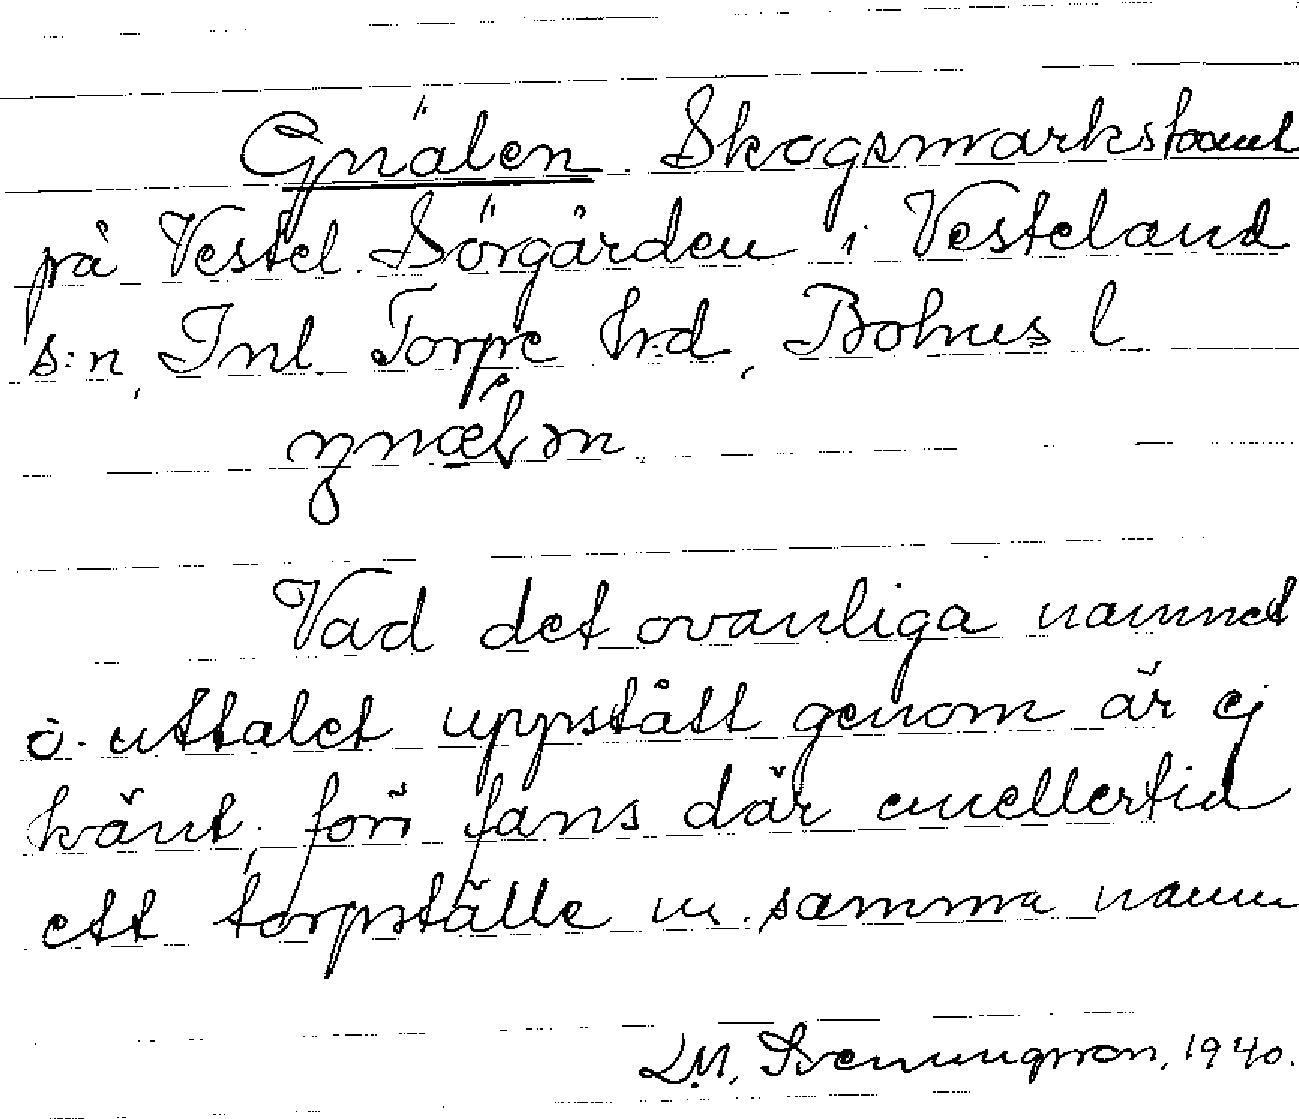 Gnälen. Skogsmarkstomt
på Vestel. Sörgården i Vesteland
s:n, Inl. Torpe hrd, Bohus l
Vad det ovanliga namnet
o. uttalet uppstått genom är ej
känt, förr fans där emellertid
ett torpställe m. samma namn
L.M. Svenungsson, 1940.